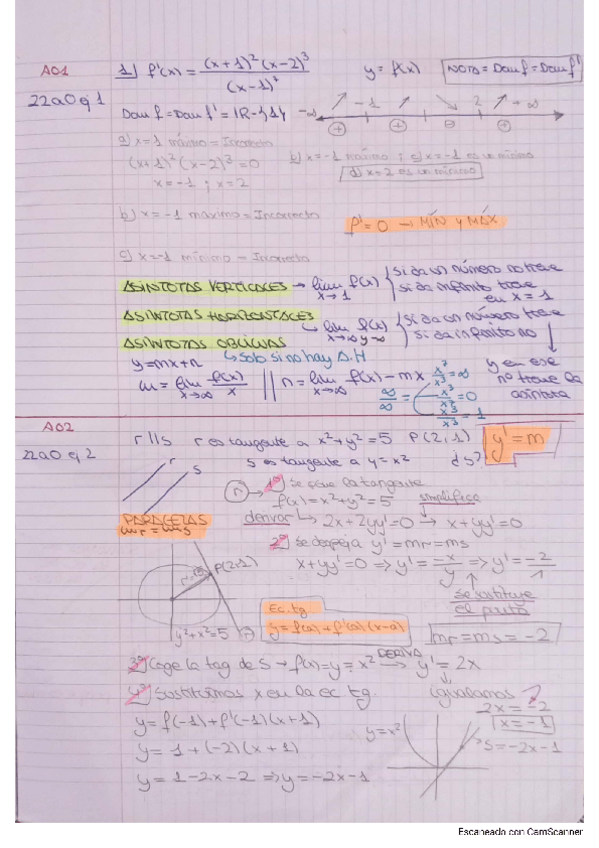 A01
22a0 ej 1
1) f'(x) = (x+1)²(x-2)³ / (x-1)²
y = f(x)
NOTA = Dom f = Dom f'
Dom f = Dom f' = IR-{1}
-∞ -1 2 +∞
⊕ ⊕ ⊖ ⊕
a) x=1 máximo = Incorrecto
(x+1)²(x-2)³=0
x=-1 ; x=2
b) x=-1 máximo ; c) x=-1 es un mínimo
d) x=2 es un mínimo
b) x=-1 máximo = Incorrecto
f'=0 → MÍN y MÁX
c) x=-1 mínimo - Incorrecto
ASÍNTOTAS VERTICALES → lim f(x) x→1
si da un número no tiene
si da infinito tiene
en x=1
ASÍNTOTAS HORIZONTALES
↳ lim f(x) x→∞
si da un número tiene
si da infinito no
y en ese
nº tiene la
asíntota
ASÍNTOTAS OBLICUAS
↳ solo si no hay A.H
y=mx+n
m = lim f(x)/x x→∞ || n = lim f(x) - mx x→∞
∞/∞ =
x⁷/x³ = ∞
x³/x⁷ = 0
x³/x³ = 1
A02
22a0 ej 2
r||s r es tangente a x²+y²=5 P(2,1)
y'=m
s es tangente a y=x² ¿s?
r s
PARALELAS
mr = ms
r → 1º Se coge la tangente
f(x) = x²+y²=5
simplifica
derivar ↳ 2x+2yy'=0 → x+yy'=0
2º se despeja y'=mr=ms
x+yy'=0 ⇒ y'=-x/y ⇒ y'=-2/1
se sustituye
el punto
P(2,1)
y²+x²=5
Ec. tg
y=f(a)+f'(a)(x-a)
mr=ms=-2
3º Coge la tag de S → f(x)=y=x² DERIVA → y'=2x
igualamos
2x=-2
x=-1
4º Sustituimos x en la ec tg.
y=f(-1)+f'(-1)(x+1)
y=1+(-2)(x+1)
y=1-2x-2 ⇒ y=-2x-1
y=x²
s=-2x-1
Escaneado con CamScanner